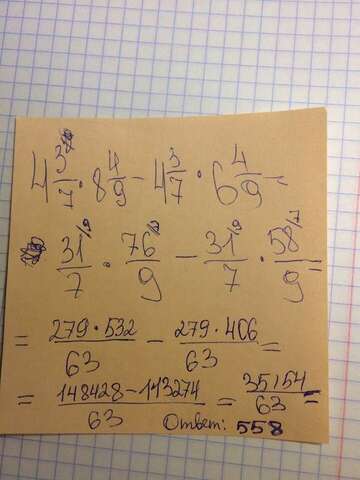 4 3/7 · 8 4/9 - 4 3/7 · 6 4/9 =
31/7 · 76/9 - 31/7 · 58/9 =
= 279·532/63 - 279·406/63 =
= 148428-113274/63 = 35154/63 =
Ответ: 558